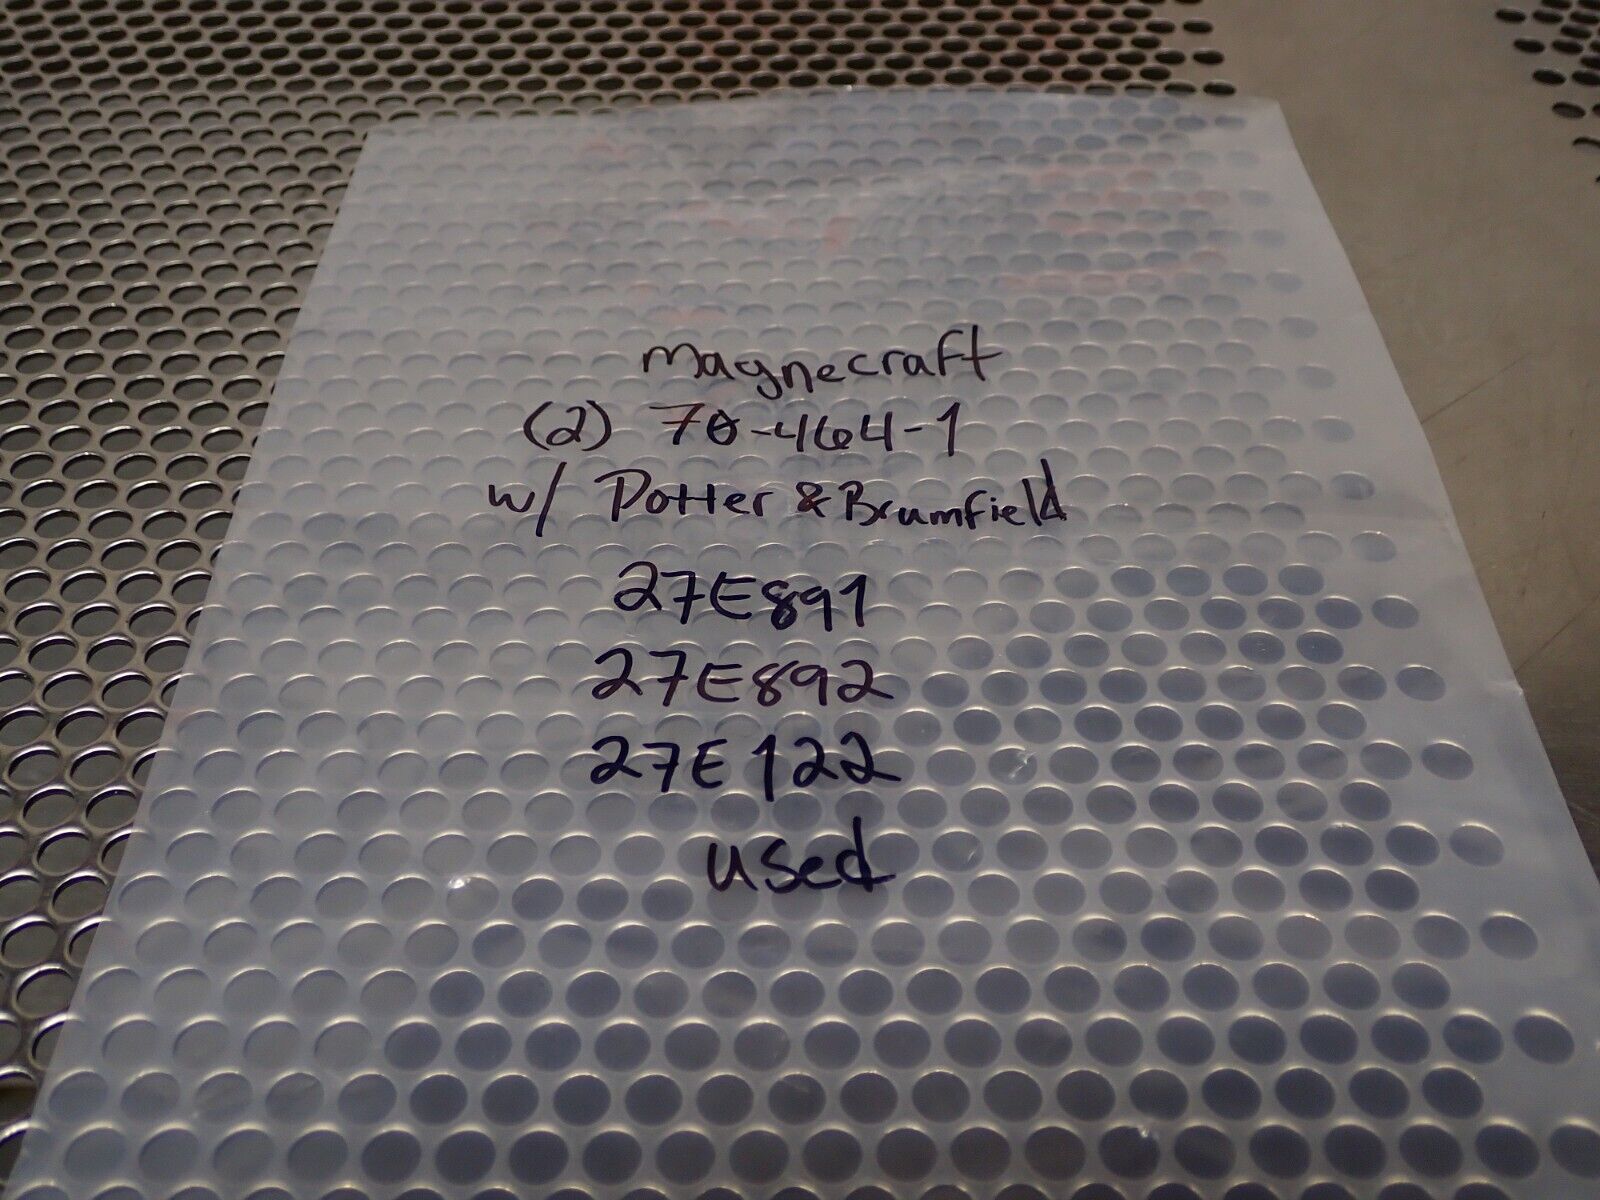 magnecraft
(2) 70-464-1
w/ Potter & Brumfield
27E891
27E892
27E122
used